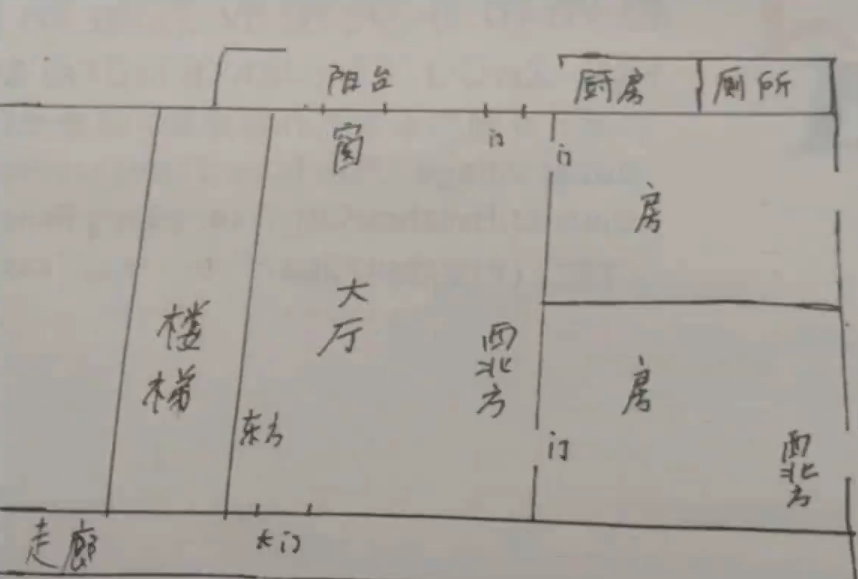 阳台
厨房
厕所
窗
门
门
房
大厅
楼梯
西北方
房
东方
门
西北方
走廊
大门